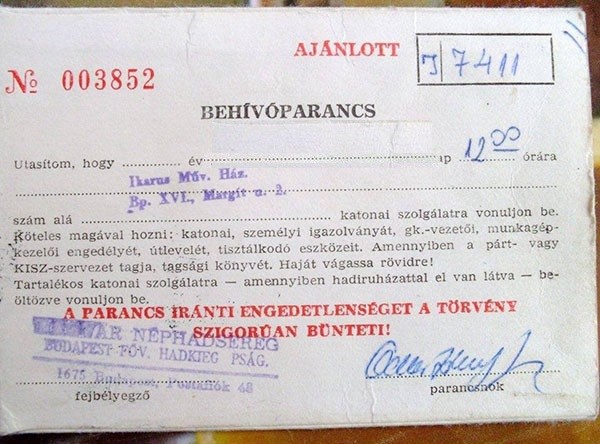 AJÁNLOTT
J 7411
№ 003852
BEHÍVÓPARANCS
Utasítom, hogy ............ év ap 12 00 órára
Ikarus Műv. Ház.
Bp. XVI., Margit u. 2.
szám alá ........................................ katonai szolgálatra vonuljon be.
Köteles magával hozni: katonai, személyi igazolványát, gk.-vezetői, munkagép-
kezelői engedélyét, útlevelét, tisztálkodó eszközeit. Amennyiben a párt- vagy
KISZ-szervezet tagja, tagsági könyvét. Haját vágassa rövidre!
Tartalékos katonai szolgálatra — amennyiben hadiruházattal el van látva — be-
öltözve vonuljon be.
A PARANCS IRÁNTI ENGEDETLENSÉGET A TÖRVÉNY
SZIGORÚAN BÜNTETI!
MAGYAR NÉPHADSEREG
BUDAPEST FŐV. HADKIEG PSÁG.
1675 Budapest, Postafiók 48
fejbélyegző
parancsnok